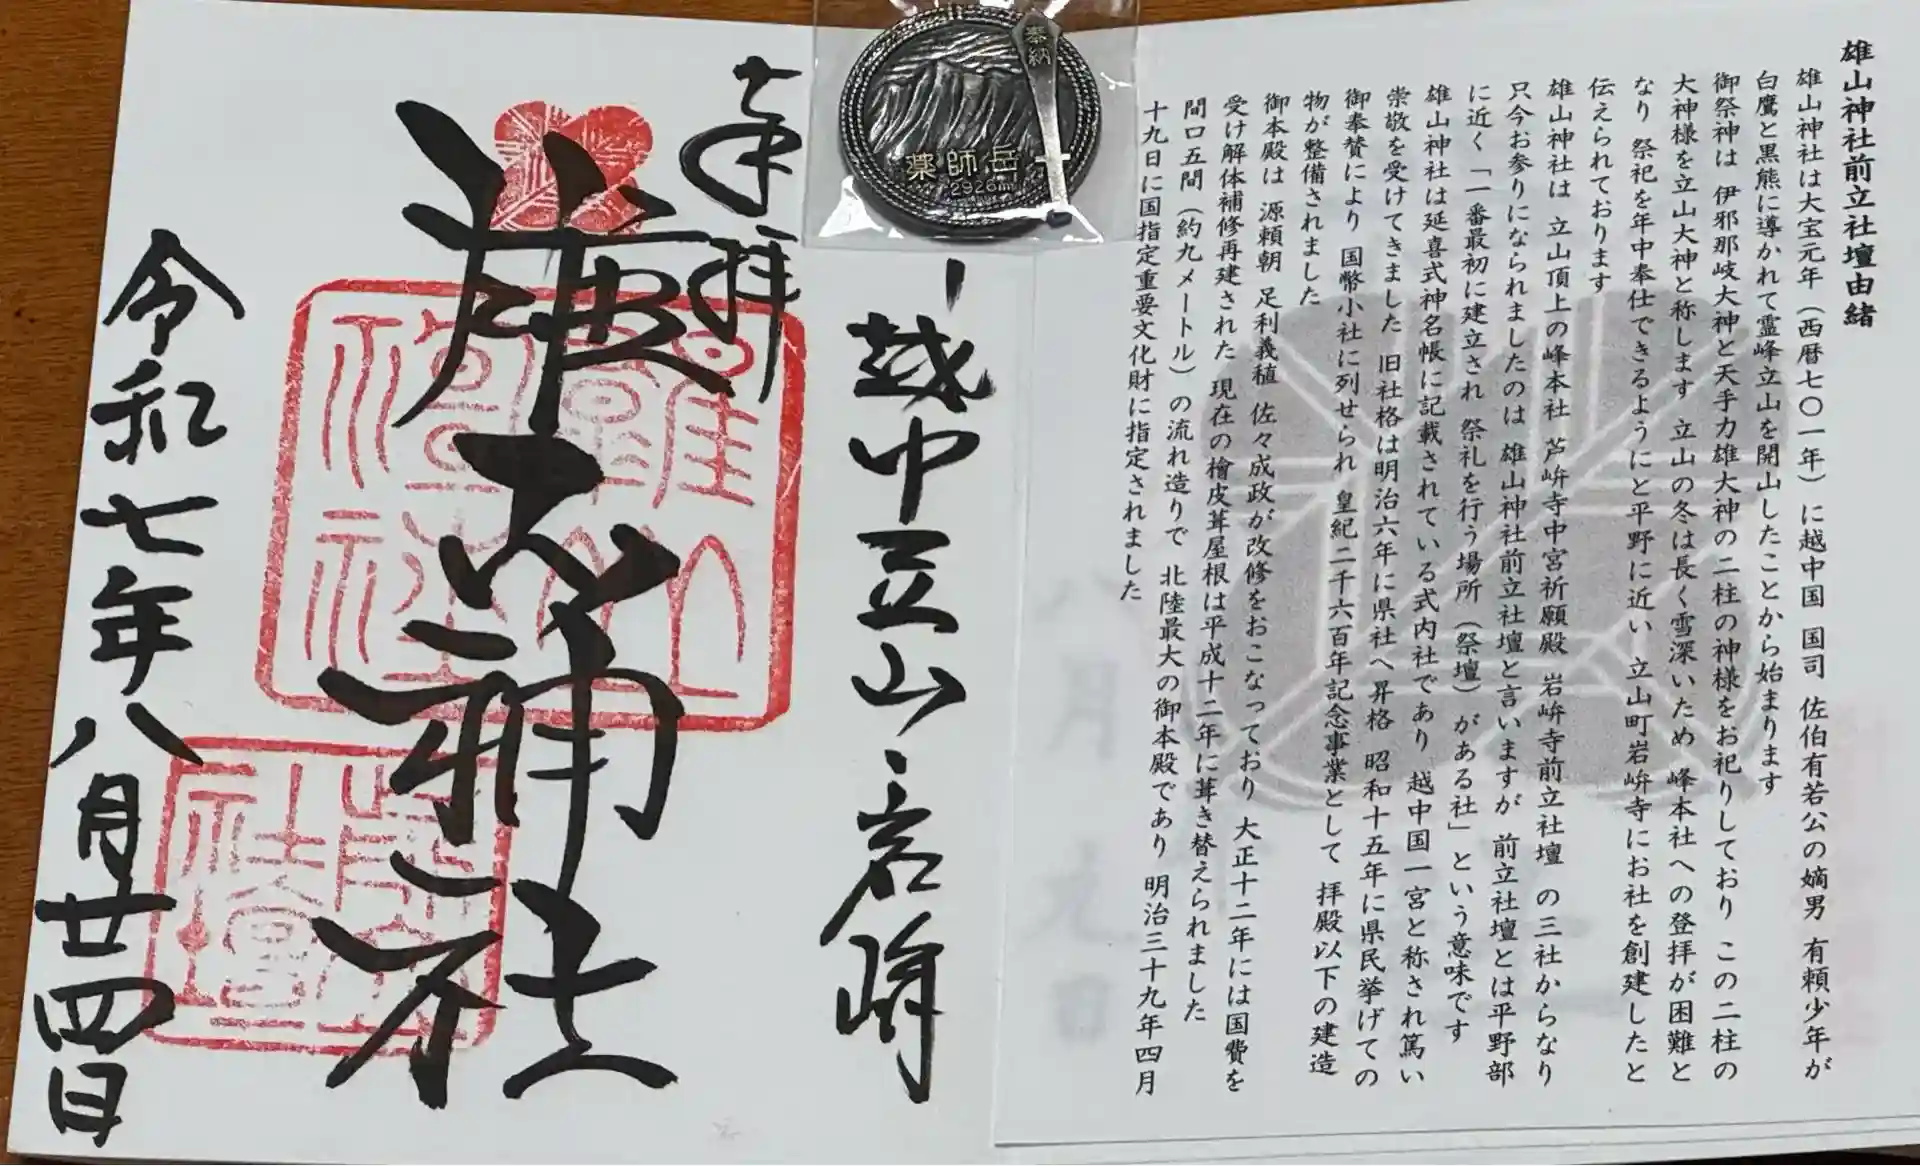 雄山神社前立社壇由緒
雄山神社は大宝元年（西暦七〇一年）に越中国 国司 佐伯有若公の嫡男 有頼少年が
白鷹と黒熊に導かれて霊峰立山を開山したことから始まります
御祭神は 伊邪那岐大神と天手力雄大神の二柱の神様をお祀りしており この二柱の
大神様を立山大神と称します 立山の冬は長く雪深いため 峰本社への登拝が困難と
なり 祭祀を年中奉仕できるようにと平野に近い 立山町岩峅寺にお社を創建したと
伝えられております
雄山神社は 立山頂上の峰本社 芦峅寺中宮祈願殿 岩峅寺前立社壇 の三社からなり
只今お参りになられましたのは 雄山神社前立社壇と言いますが 前立社壇とは平野部
に近く「一番最初に建立され 祭礼を行う場所（祭壇）がある社」という意味です
雄山神社は延喜式神名帳に記載されている式内社であり 越中国一宮と称され篤い
崇敬を受けてきました 旧社格は明治六年に県社へ昇格 昭和十五年に県民挙げての
御奉賛により 国幣小社に列せられ 皇紀二千六百年記念事業として 拝殿以下の建造
物が整備されました
御本殿は 源頼朝 足利義稙 佐々成政が改修をおこなっており 大正十二年には国費を
受け解体補修再建された 現在の檜皮葺屋根は平成十二年に葺き替えられました
間口五間（約九メートル）の流れ造りで 北陸最大の御本殿であり 明治三十九年四月
十九日に国指定重要文化財に指定されました
奉納
薬師岳
2926m
越中立山 岩峅
奉拝
雄山神社
雄山神社
前立社壇
令和七年八月廿四日